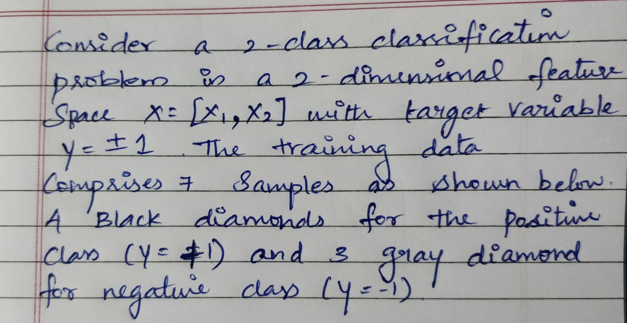 Consider a 2-class classification
problem in a 2-dimensional feature
Space X = [X1, X2] with target variable
y = ±1. The training data
Comprises 7 Samples as shown below.
4 Black diamonds for the positive
class (y = +1) and 3 gray diamond
for negative class (y = -1)